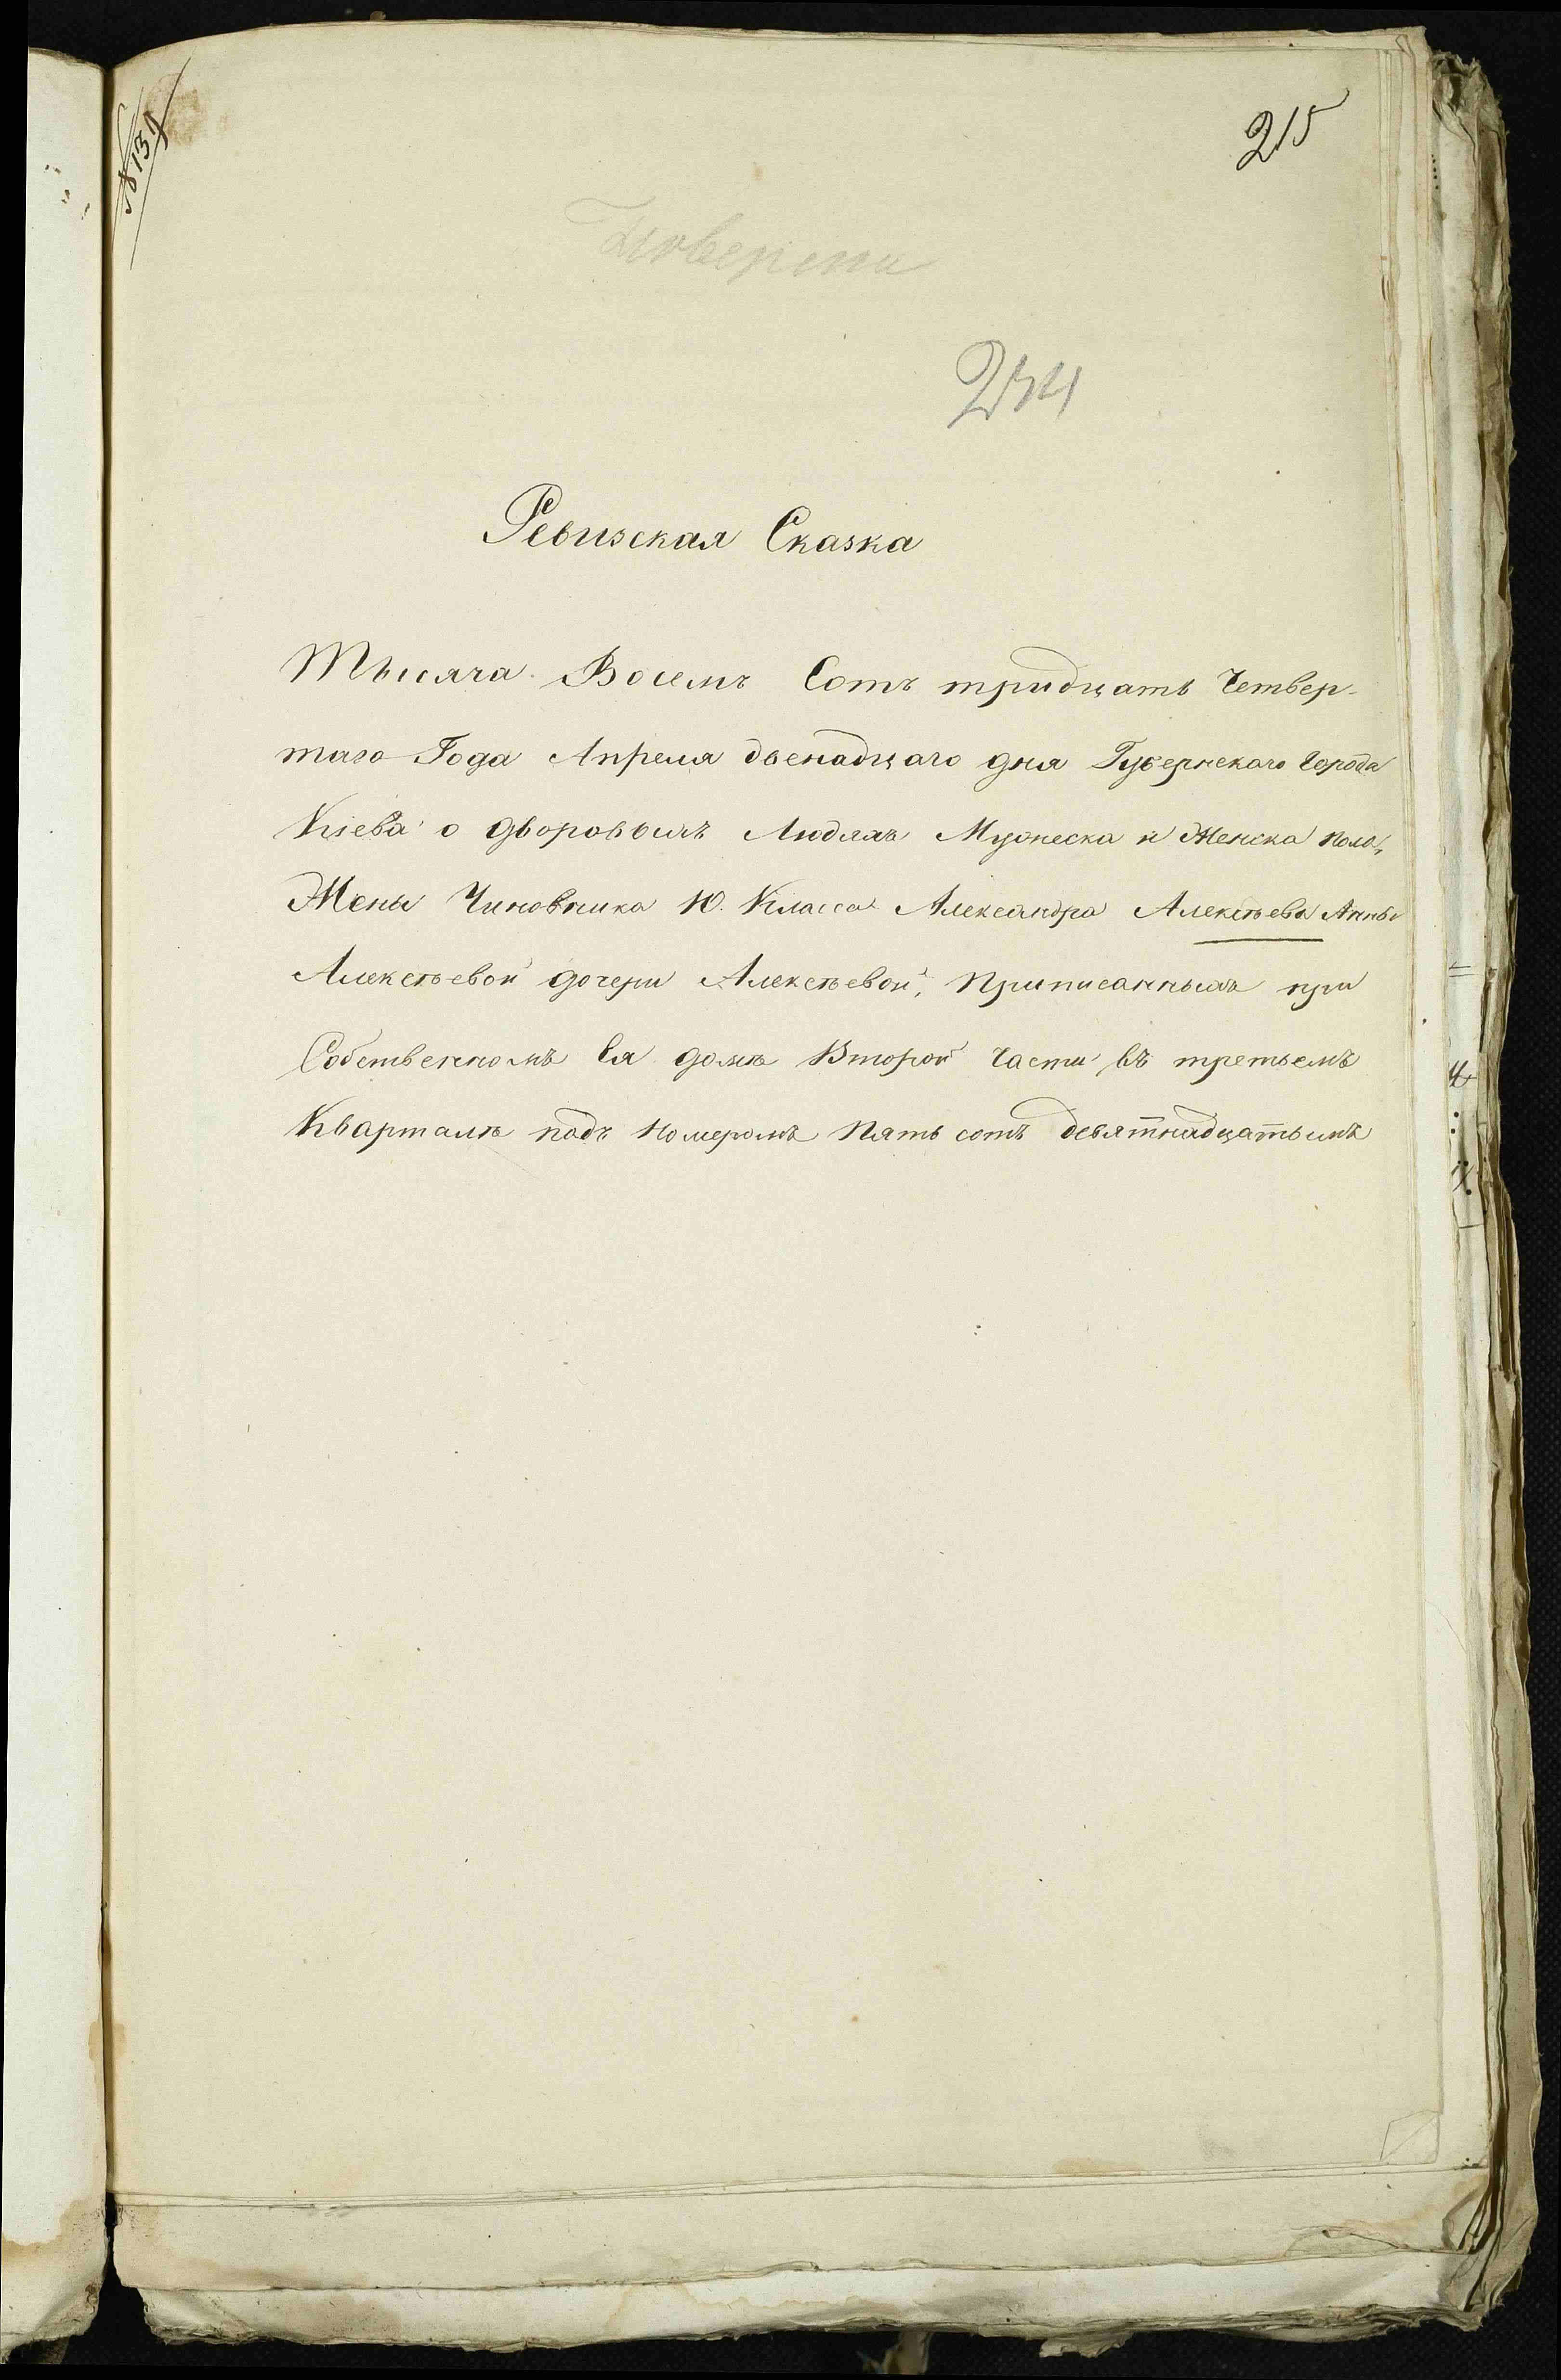 № 139
215
Поверена
Ревизская Сказка
Тысяча Восемъ Сотъ тридцать Четвер-
таго Года Апреля двенадцаго дня Губернскаго Города
Кіева о дворовыхъ Людяхъ Мужеска и Женска пола,
Жены Чиновника 10. Класса Александра Алексѣева Анны
Алексѣевой дочери Алексѣевой, Приписанныхъ при
Собственномъ Ея домѣ Второй Части въ третьемъ
Кварталѣ подъ Номеромъ Пять сотъ девятнадцатымъ